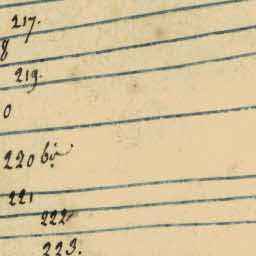 217.
8
219.
0
220 bis
221
222
223.